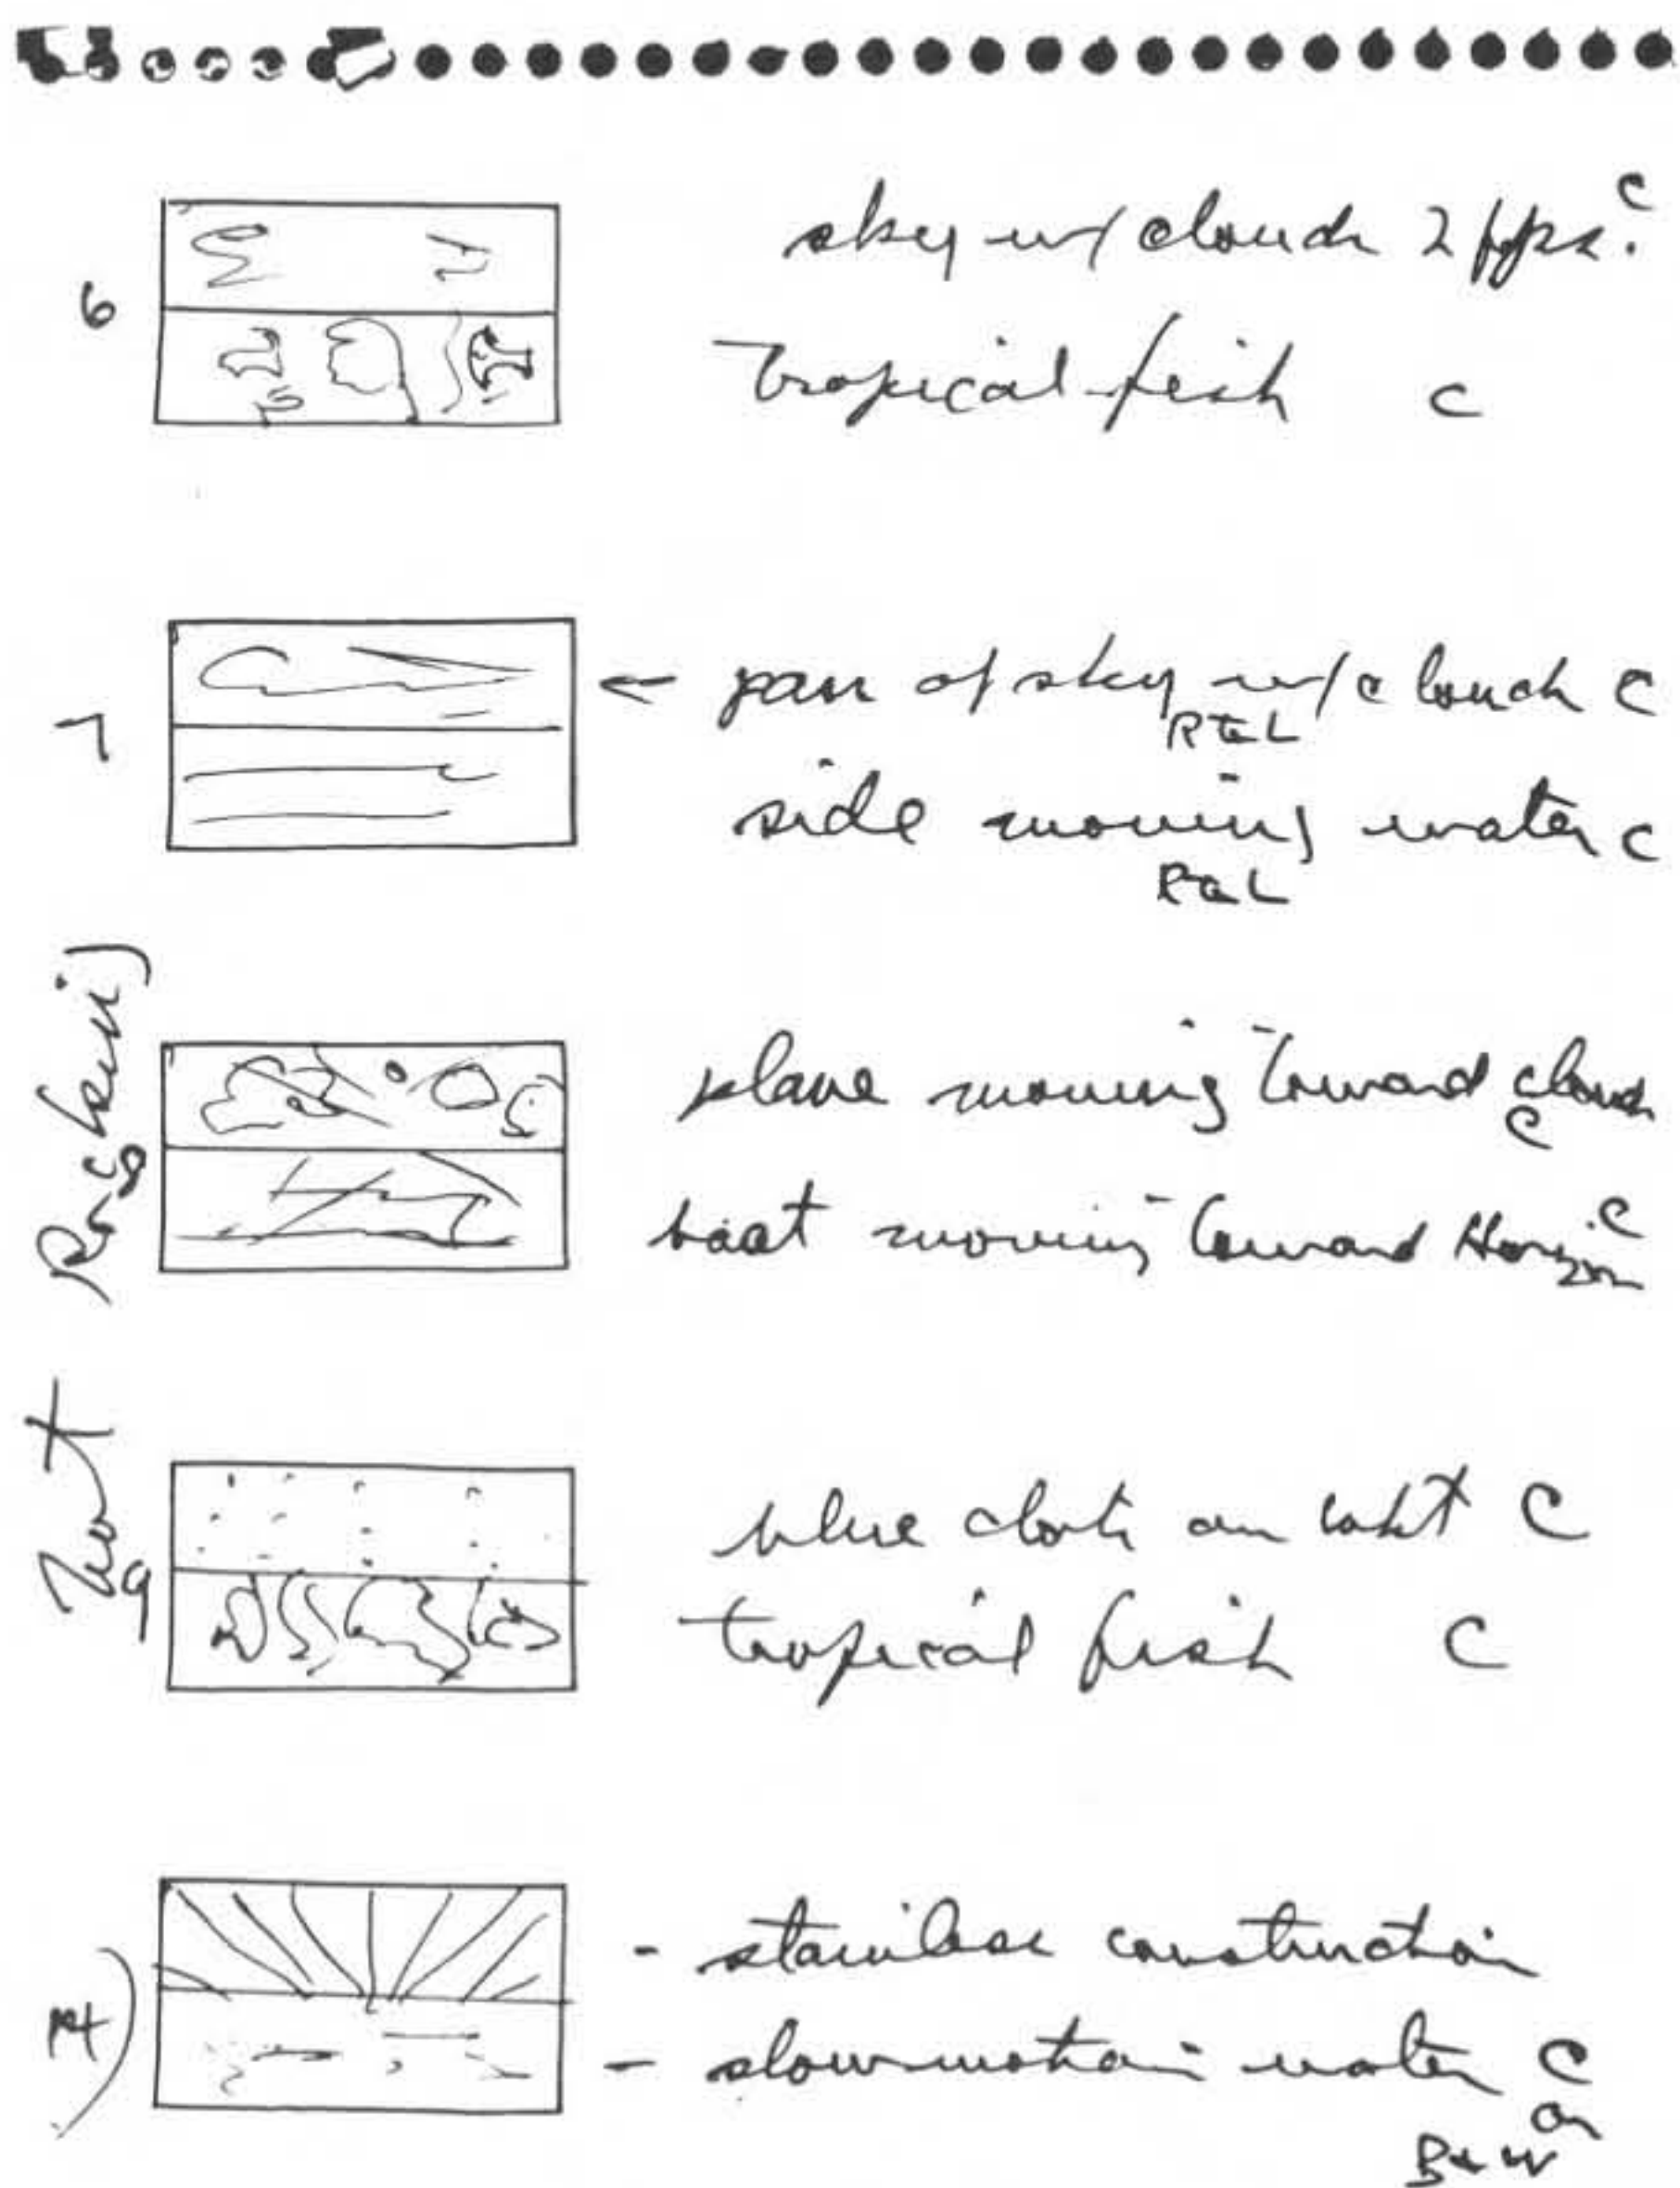 6
sky w/ clouds 2 fps. C
Tropical fish C
7
← pan of sky w/ clouds C
R to L
side moving water C
R to L
8
plane moving toward clouds
C
boat moving toward Horizon C
9
blue cloth C
tropical fish C
- stainless construction
- slow motion water C
or
B+W